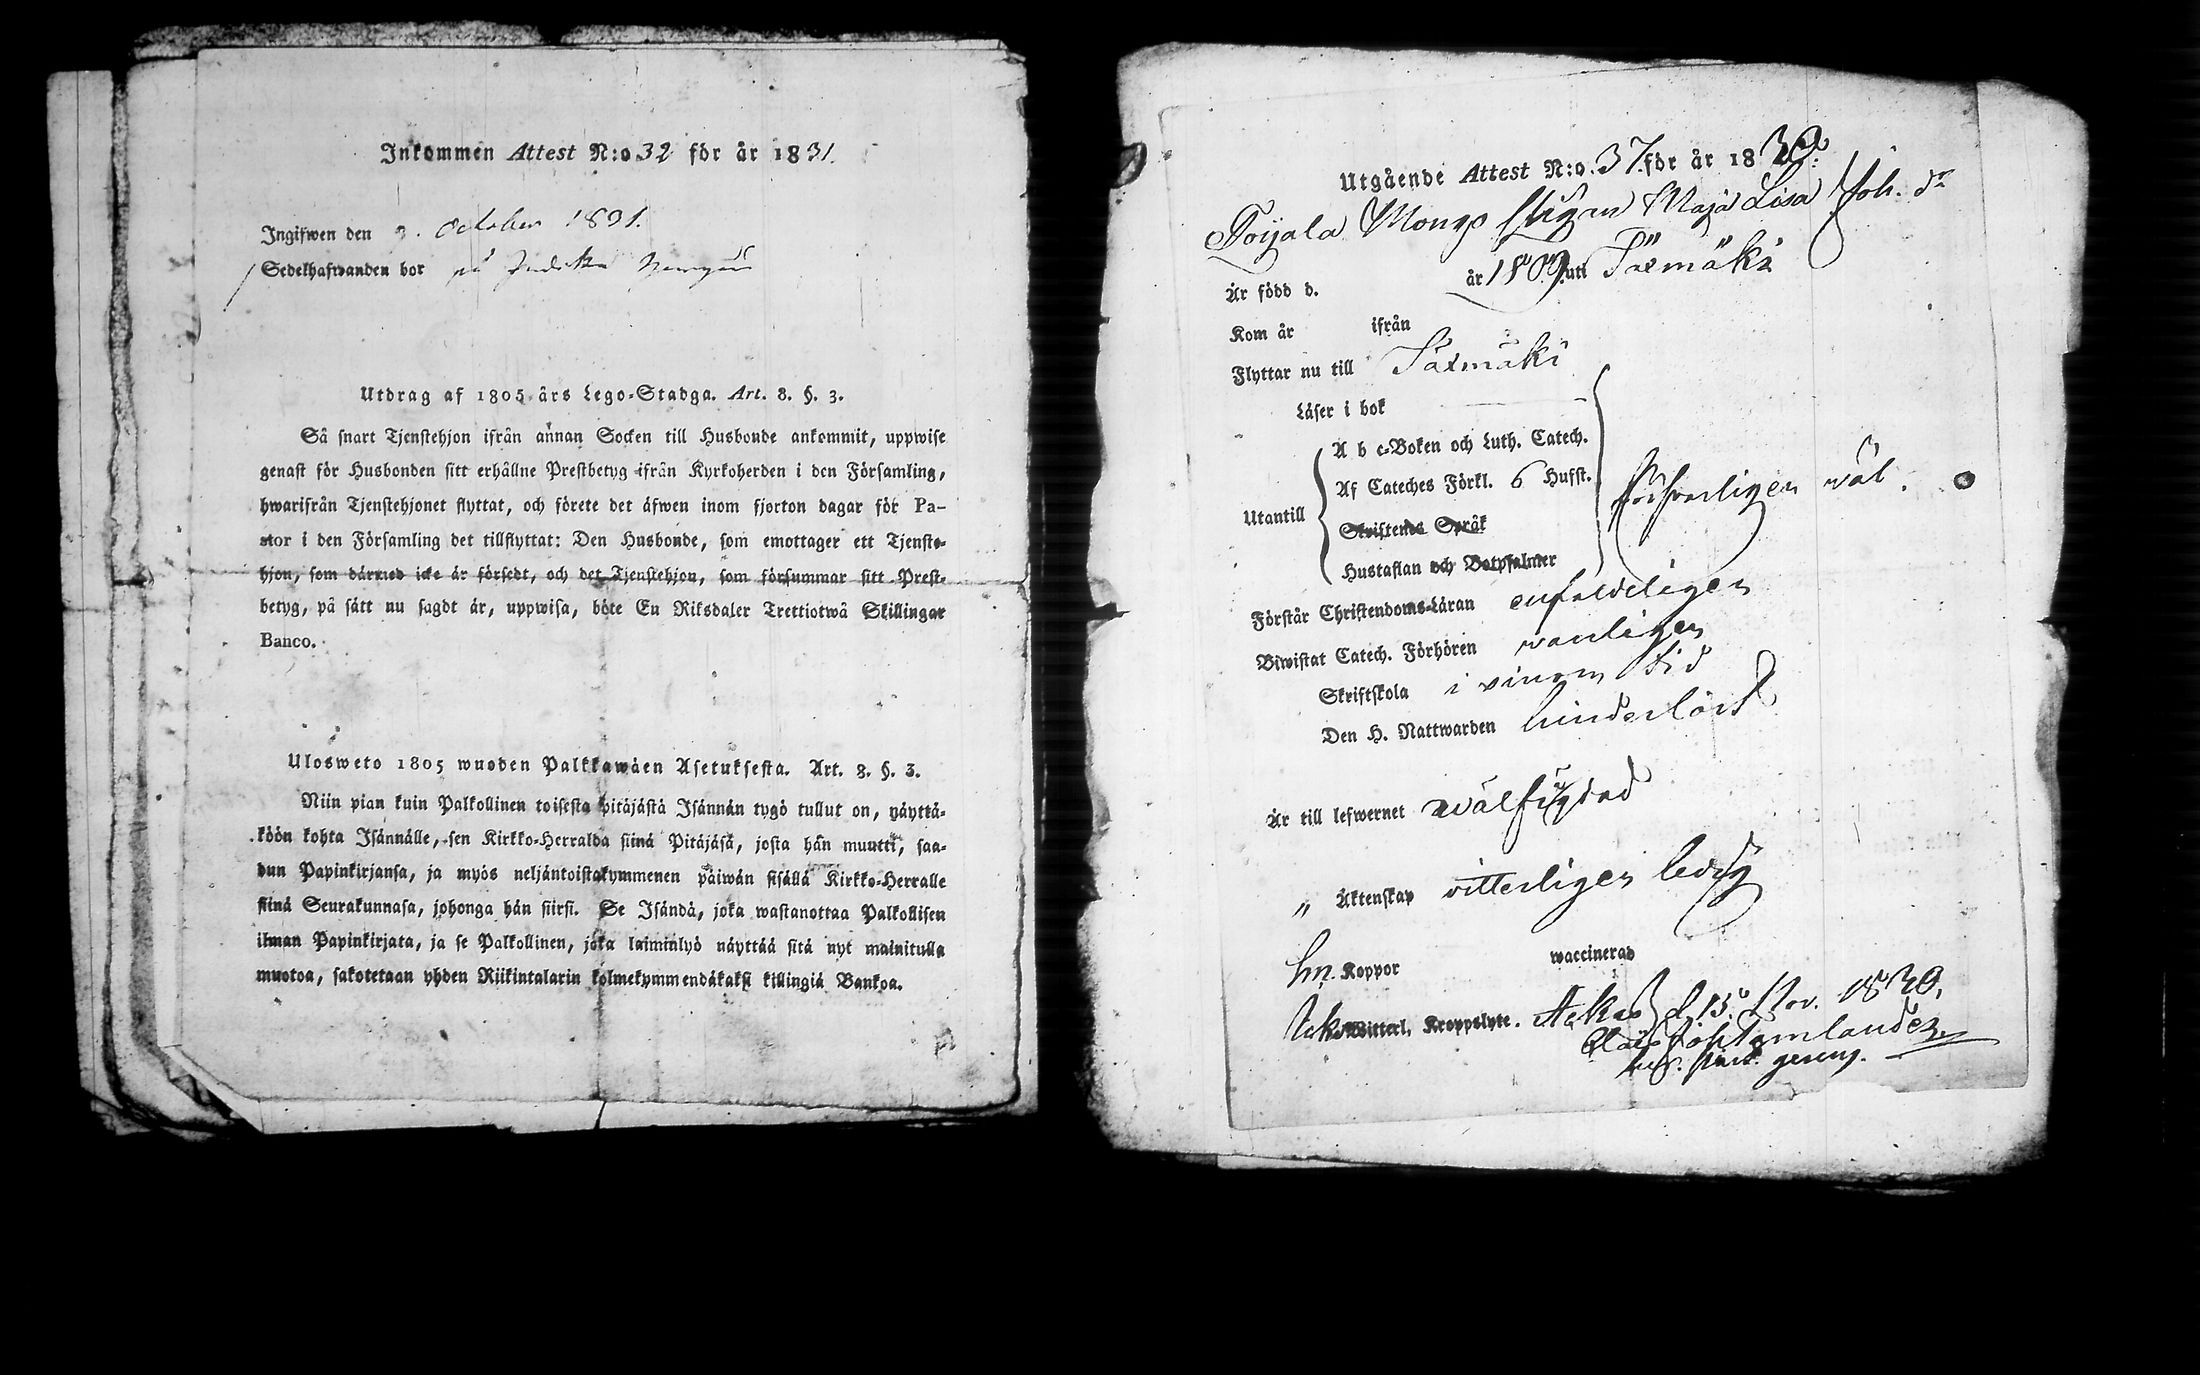 Inkommen Attest N:o 32 för år 1831.
Ingifwen den 3. October 1831.
Sedelhafwanden bor på
Utdrag af 1805 års Lego-Stadga. Art. 8. §. 3.
Så snart Tjenstehjon ifrån annan Socken till Husbonde ankommit, uppwise
genast för Husbonden sitt erhållne Prestbetyg ifrån Kyrkoherden i den Församling,
hwarifrån Tjenstehjonet flyttat, och förete det äfwen inom fjorton dagar för Pa-
stor i den Församling det tillflyttat: Den Husbonde, som emottager ett Tjenste-
hjon, som därmed icke är försedt, och det Tjenstehjon, som försummar sitt Prest-
betyg, på sätt nu sagdt är, uppwisa, böte En Riksdaler Trettiotwå Skillingar
Banco.
Ulosweto 1805 wuoden Palkkawäen Asetuksesta. Art. 8. §. 3.
Niin pian kuin Palkollinen toisesta pitäjästä Isännän tygö tullut on, näyttä-
köön kohta Isännälle, sen Kirkko-Herralda siinä Pitäjäsä, josta hän muutti, saa-
dun Papinkirjansa, ja myös neljäntoistakymmenen päiwän sisällä Kirkko-Herralle
siinä Seurakunnasa, johonga hän siirsi. Se Isändä, joka wastanottaa Palkollisen
ilman Papinkirjata, ja se Palkollinen, joka laiminlyö näyttää sitä nyt mainitulla
muotoa, sakotetaan yhden Riikintalarin kolmekymmendäkaksi killingiä Bankoa.
Utgående Attest N:o. 37. för år 1830.
Toijala Monys Pigan Maja Lisa Joh. dr
Är född d. år 1809. uti Säxmäki
Kom år ifrån
Flyttar nu till Säxmäki
Läser i bok
A b c-Boken och Luth. Catech.
Af Cateches Förkl. 6 Hufst.
Utantill försvarligen wäl.
Skriftenes Språk
Hustaflan och Botpsalmer
Förstår Christendoms-Läran enfaldeligen
Biwistat Catech. Förhören wanligen
Skriftskola i sinom tid
Den H. Nattwarden hinderlöst
Är till lefwernet wälfrägdad
„ Äktenskap vitterligen ledig
hn. Koppor waccinerad
Witterl. Kroppslyte. Ackas d. 15. Nov. 1830.